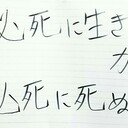 必死に生き
か
必死に死ぬ